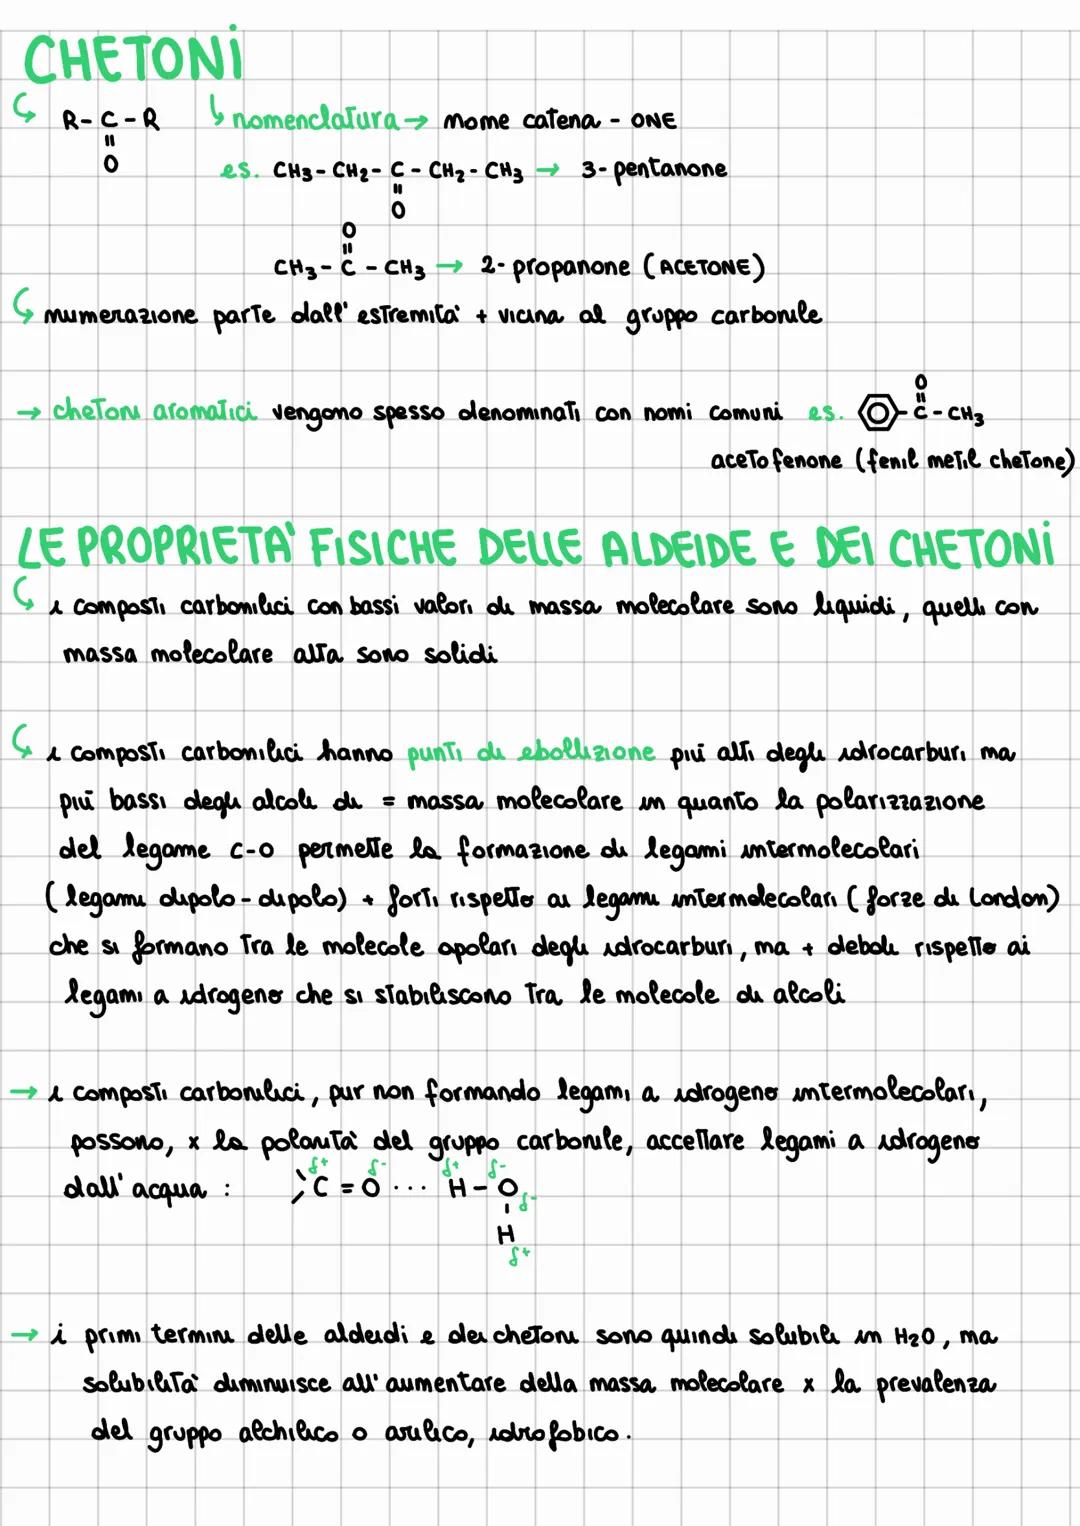 CHETONI
R-C-R nomenclatura → nome catena - ONE
O
es. CH3-CH2-C-CH2-CH3 → 3-pentanone
O
O
CH3-C-CH3 → 2-propanone (ACETONE)
numerazione parte dall'estremità + vicina al gruppo carbonile
O
→ chetoni aromatici vengono spesso denominati con nomi comuni es. C-CH3
acetofenone (fenil metil chetone)
LE PROPRIETA' FISICHE DELLE ALDEIDE E DEI CHETONI
i composti carbonilici con bassi valori di massa molecolare sono liquidi, quelli con
massa molecolare alta sono solidi
i composti carbonilici hanno punti di ebollizione più alti degli idrocarburi ma
più bassi degli alcoli di = massa molecolare in quanto la polarizzazione
del legame C-O permette la formazione di legami intermolecolari
(legami dipolo-dipolo) + forti rispetto ai legami intermolecolari (forze di London)
che si formano tra le molecole apolari degli idrocarburi, ma + deboli rispetto ai
legami a idrogeno che si stabiliscono tra le molecole di alcoli
→ i composti carbonilici, pur non formando legami a idrogeno intermolecolari,
possono, x la polarità del gruppo carbonile, accettare legami a idrogeno
δ+ δ- δ+ δ-
dall'acqua : C=O ... H-O δ-
H
δ+
→ i primi termini delle aldeidi e dei chetoni sono quindi solubili in H2O, ma
solubilità diminuisce all'aumentare della massa molecolare x la prevalenza
del gruppo alchilico o arilico, idrofobico.